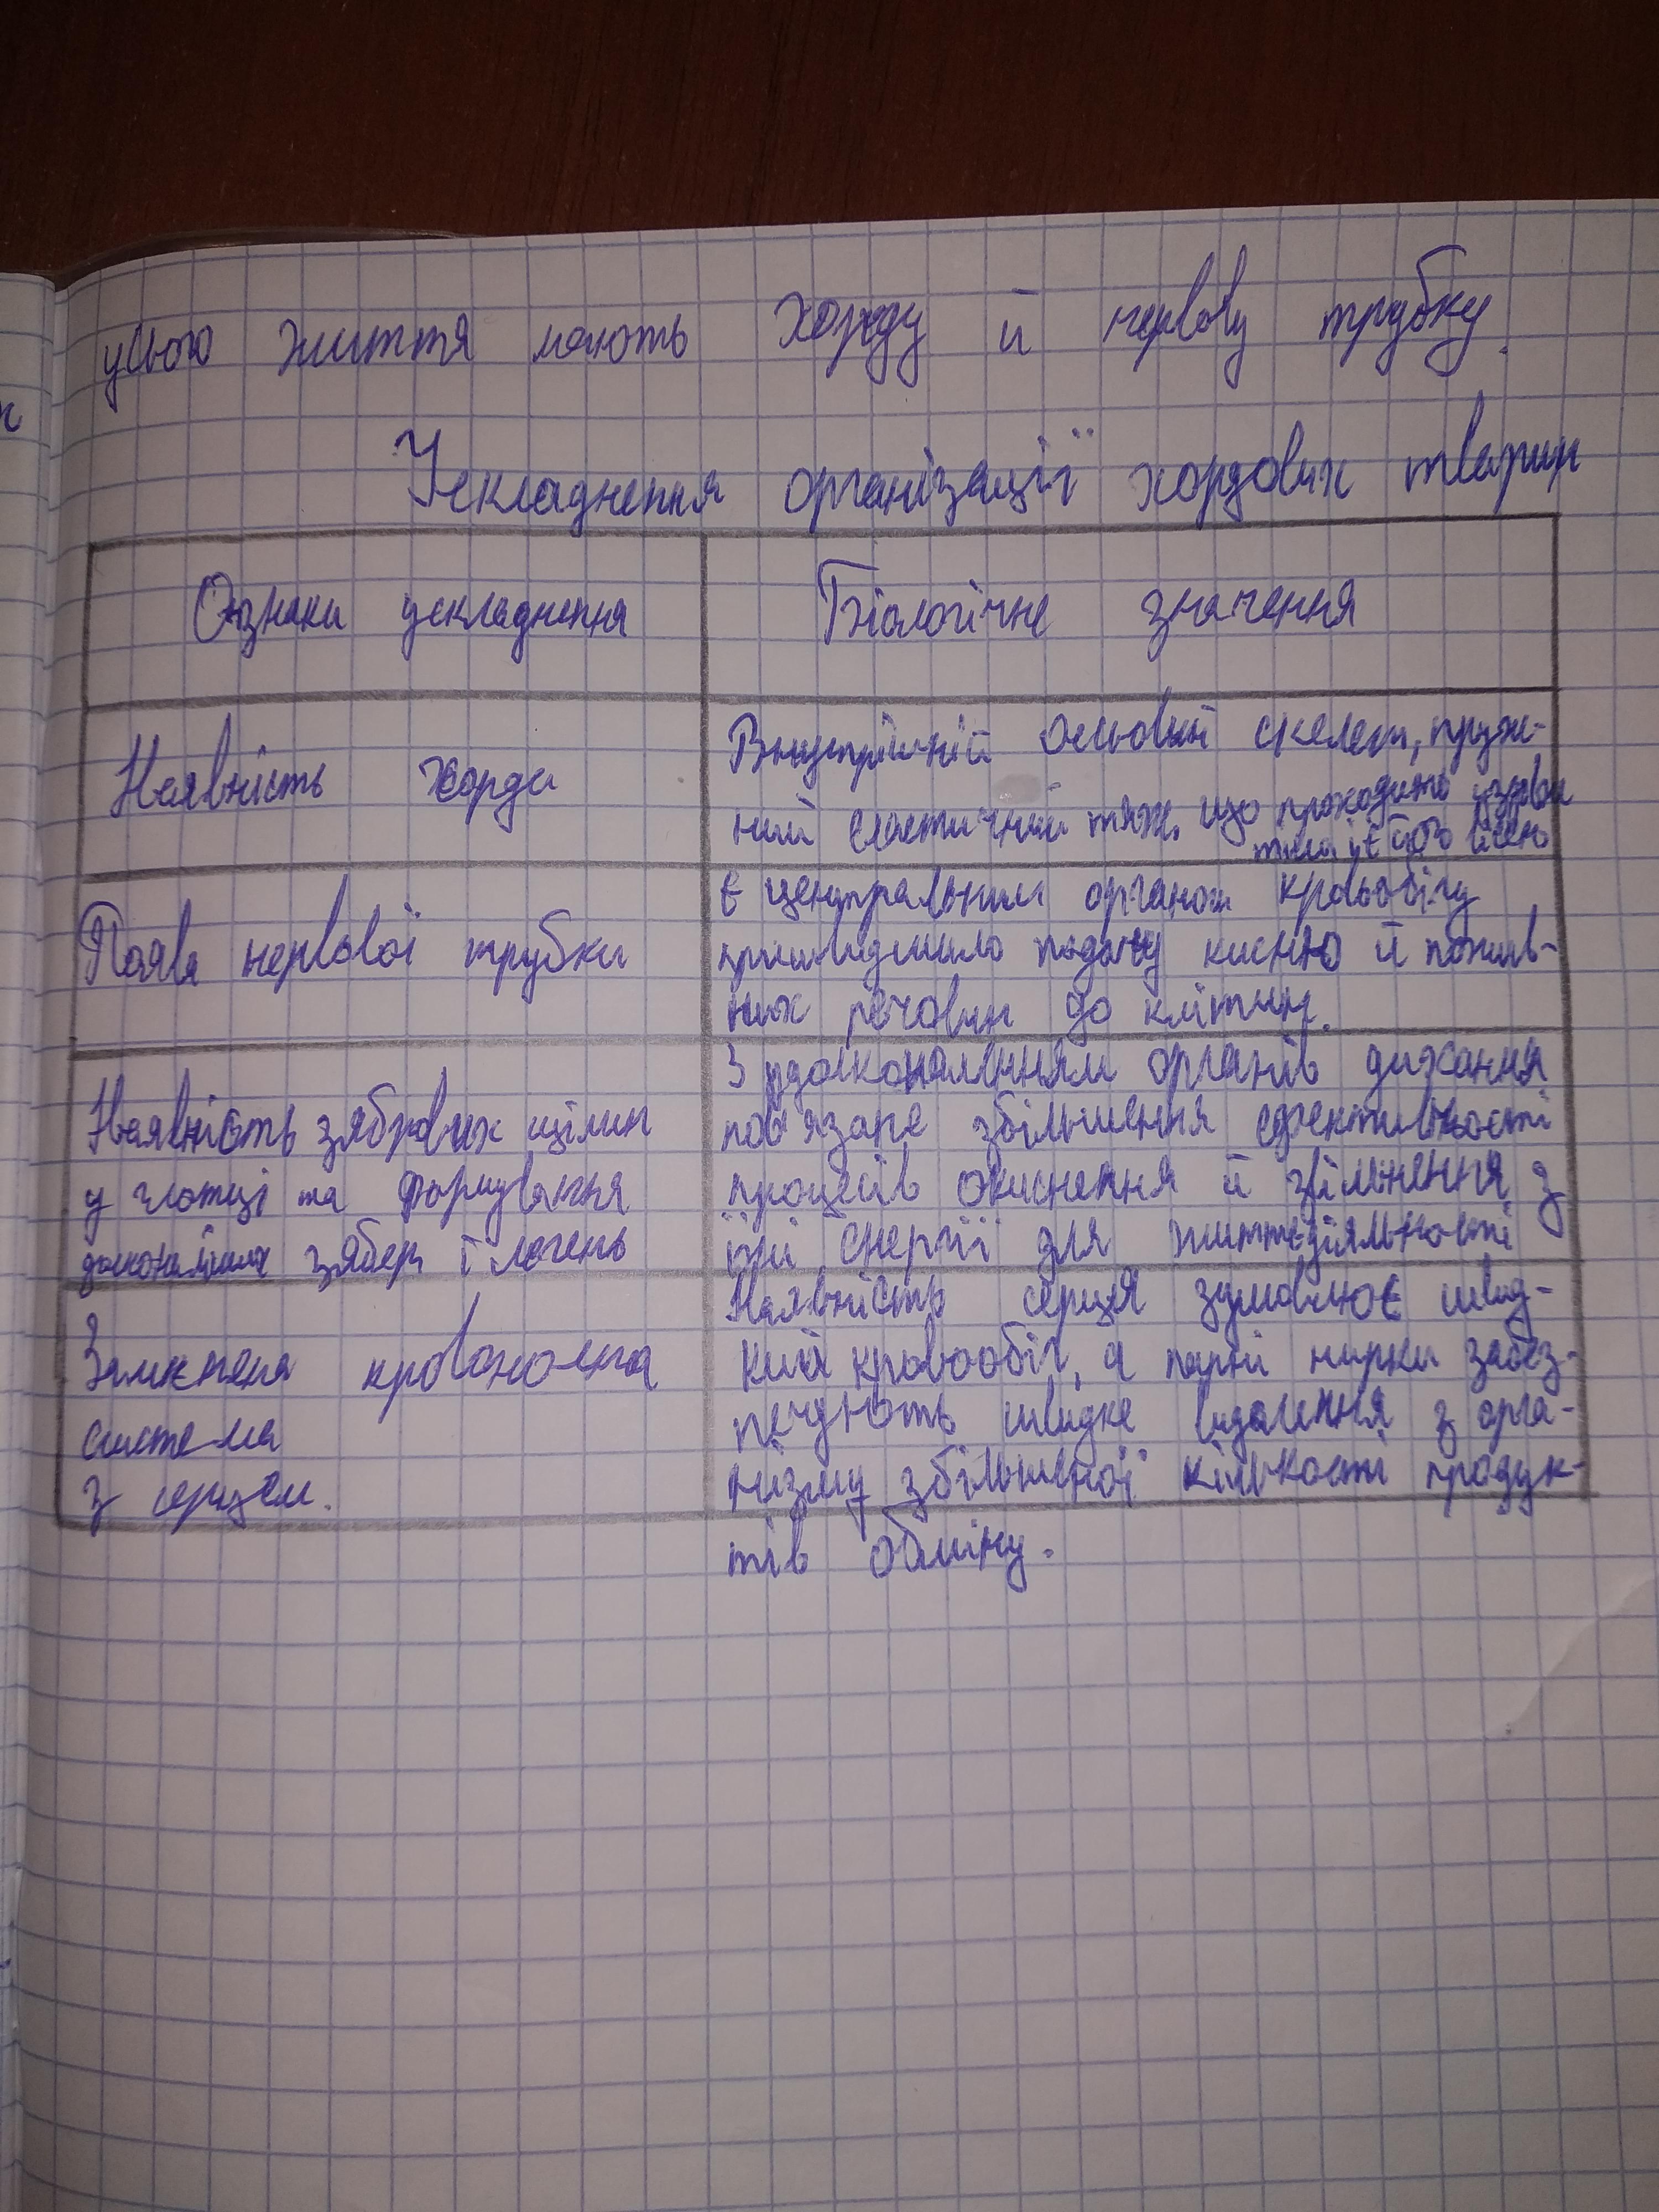 усього життя мають хорду й нервову трубку.
Ускладнення організації хордових тварин
Ознаки ускладнення
Біологічне значення
Наявність хорди
Внутрішній осьовий скелет, пруж-
ний еластичний тяж, що проходить уздовж
тіла і є його віссю
Поява нервової трубки
Є центральним органом кровообігу
пришвидшило подачу кисню й пожив-
них речовин до клітин.
Наявність зябрових щілин
у глотці та формування
досконаліших зябер і легень
З удосконаленням органів дихання
пов'язане збільшення ефективності
процесів окиснення й звільнення з
їжі енергії для життєдіяльності
Замкнена кровоносна
система
з серцем.
Наявність серця зумовлює швид-
кий кровообіг, а парні нирки забез-
печують швидке видалення з орга-
нізму збільшеної кількості продук-
тів обміну.